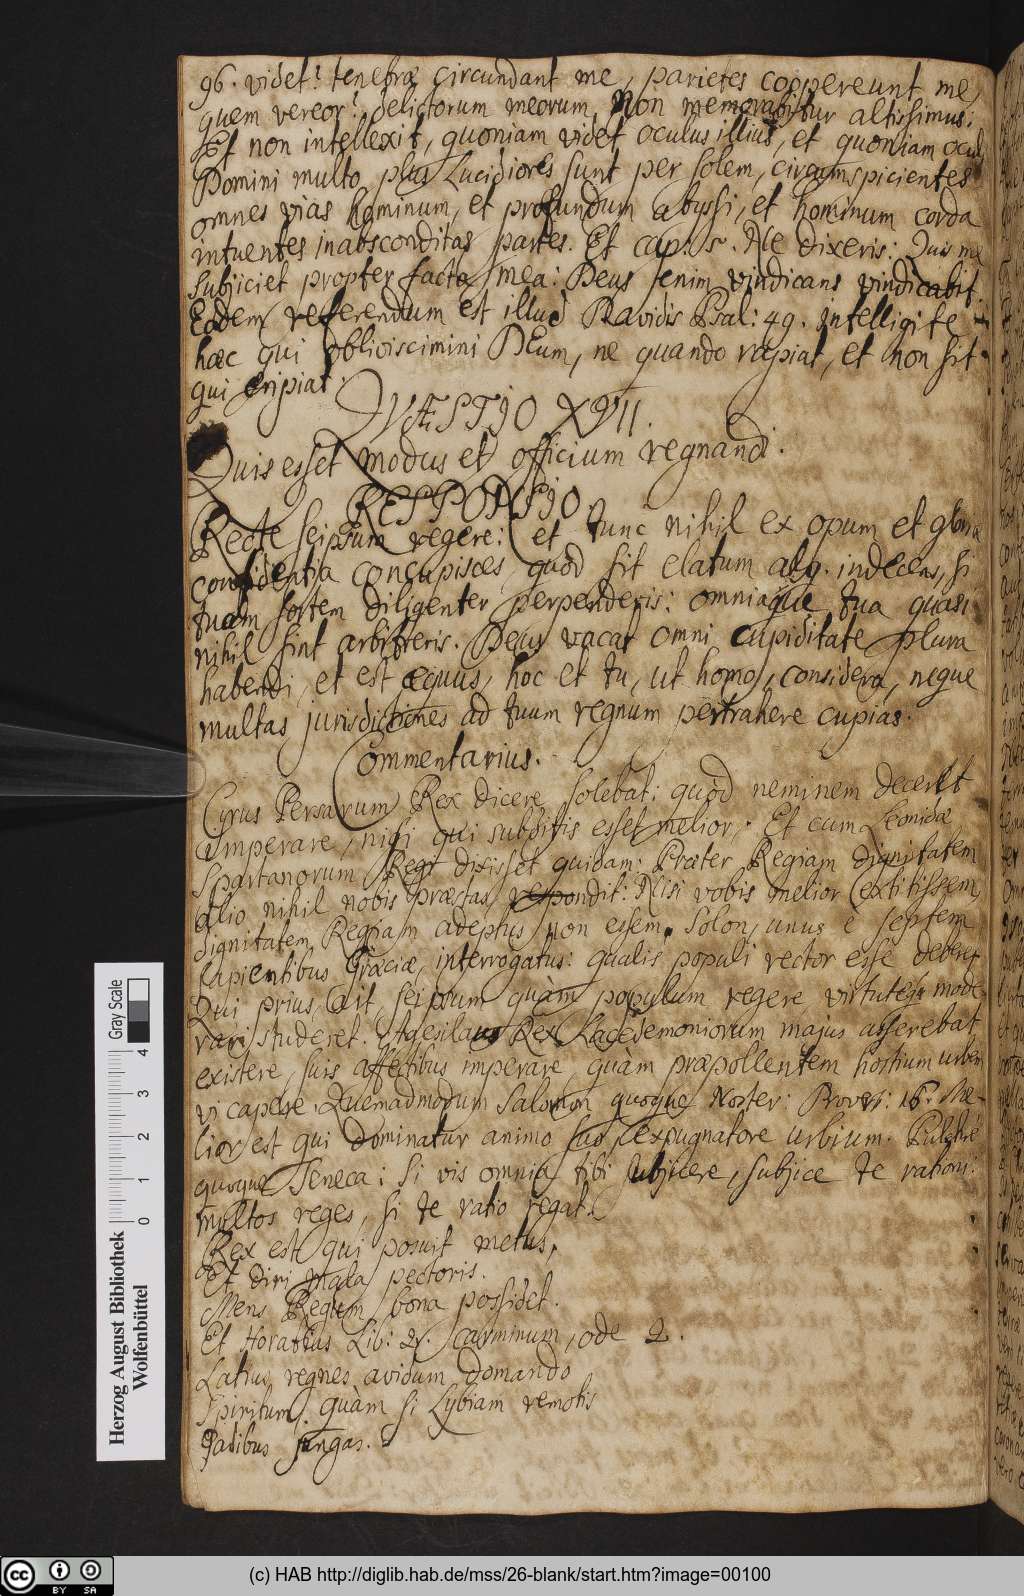 96. videt? tenebræ circundant me, parietes coopereunt me,
quem vereor? delictorum meorum, Non memorabitur altissimus:
Et non intellexit, quoniam videt oculus illius, et quoniam ocul
Domini multo plus Lucidiores sunt per solem, circumspicientes
omnes vias hominum, et profundum abyssi, et hominum corda
intuentes inabsconditas partes. Et cap. 5. Ne dixeris: Quis me
subjiciet propter facta mea: Deus enim vindicans vindicabit.
Eodem referendum est illud Davidis Psal: 49. intelligite
hæc qui obliviscimini DEum, ne quando rapiat, et non sit
qui eripiat.
QVÆSTIO XVII.
Quis esset modus et officium regnandi.
RESPONSIO.
Recte seipsum regere: et tunc nihil ex opum et gloriæ
confidentia concupisces, quod sit elatum alq. indecens, si
tuam sortem diligenter perpenderis: omniaque tua quasi
nihil sint arbitreris. Deus vacat omni cupiditate plura
habendi, et est æquus, hoc et tu, ut homo, considera, neque
multas jurisdictiones ad tuum regnum pertrahere cupias.
Commentarius.
Cyrus Persarum Rex dicere solebat: quod neminem deceret
imperare, nisi qui subditis esset melior. Et cum Leonidæ
Spartanorum Regi dixisset quidam: Præter Regiam dignitatem
alio nihil nobis præstas, respondit: Nisi vobis melior extitissem,
dignitatem Regiam adeptus non essem. Solon, unus è septem
sapientibus Græciæ, interrogatus: qualis populi rector esse deberet
Qui prius, ait, seipsum quam populum regere, virtuteq mode-
rari studeret. Agesilaus Rex Lacedemoniorum majus asserebat
existere, suis affectibus imperare, quàm præpollentem hostium urbem
vi capere. Quemadmodum Salomon quoque Noster: Prover: 16. Me-
lior est qui dominatur animo suo, expugnatore urbium. Pulchre
quoque Seneca: Si vis omnia tibi subjicere, subjice te rationi:
multos reges, si te ratio regat.
Rex est qui posuit metus,
Et diri mala pectoris.
Mens Regum bona possidet.
Et Horatius Lib: 2. carminum, ode 2.
Latius regnes avidum domando
Spiritum, quàm si Lybiam remotis
Gadibus jungas.
Herzog August Bibliothek
Wolfenbüttel
0 1 2 3 4
Gray Scale
cc BY SA
(c) HAB http://diglib.hab.de/mss/26-blank/start.htm?image=00100